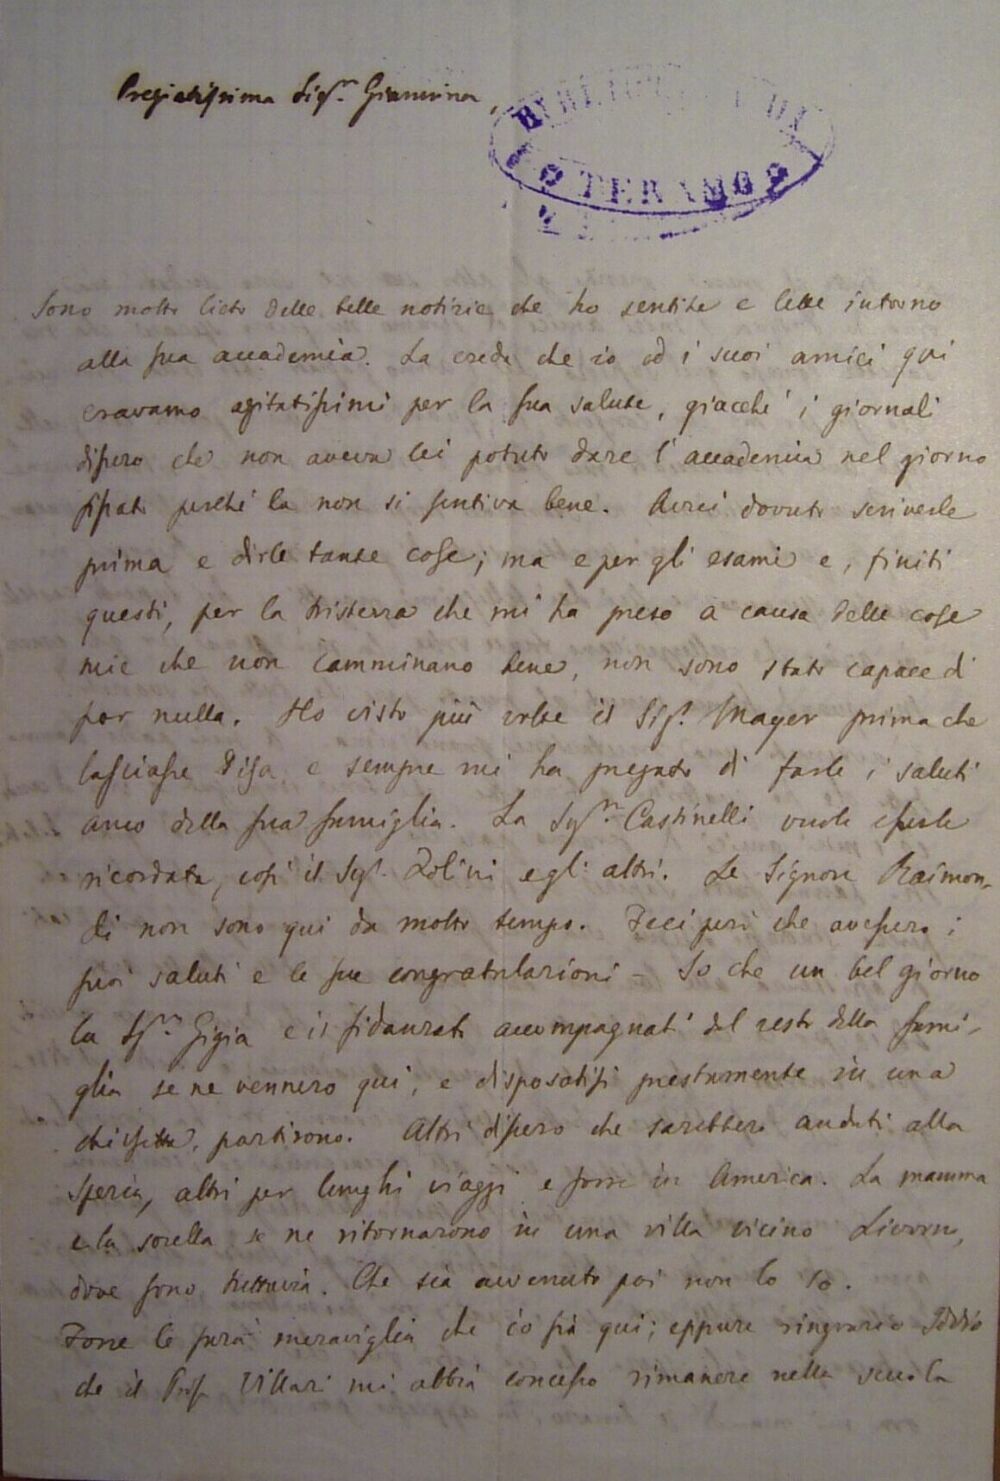 Pregiatissima Sigra. Giannina,
BIBLIOT
TERAMO
Sono molto lieto delle belle notizie che ho sentite e lette intorno
alla sua accademia. La creda che io ed i suoi amici qui
eravamo agitatissimi per la sua salute, giacchè i giornali
dissero che non aveva lei potuto dare l'accademia nel giorno
fissato perchè la non si sentiva bene. Avrei dovuto scriverle
prima e dirle tante cose; ma e per gli esami e, finiti
questi, per la tristezza che mi ha preso a causa delle cose
mie che non camminano bene, non sono stato capace di
far nulla. Ho visto più volte il Sigr. Mayer prima che
lasciasse Pisa e sempre mi ha pregato di farle i saluti
anco della sua famiglia. La Sigra. Castinelli vuole esserle
ricordata, così il Sigr. e gli altri. Le Signore Raimon-
di non sono qui da molto tempo. Feci però che avessero i
suoi saluti e le sue congratulazioni – So che un bel giorno
la Sigra. Gigia e il fidanzato accompagnati dal resto della fami-
glia se ne vennero qui, e disposatisi prestamente in una
chiesetta, partirono. Altri dissero che sarebbero andati alla
Spezia, altri per lunghi viaggi e forse in America. La mamma
e la sorella se ne ritornarono in una villa vicino Livorno,
dove sono tuttavia. Che sia avvenuto poi non lo so.
Forse le farà meraviglia che io sia qui; eppure ringrazio Iddio
che il Prof. Villari mi abbia concesso rimanere nella scuola